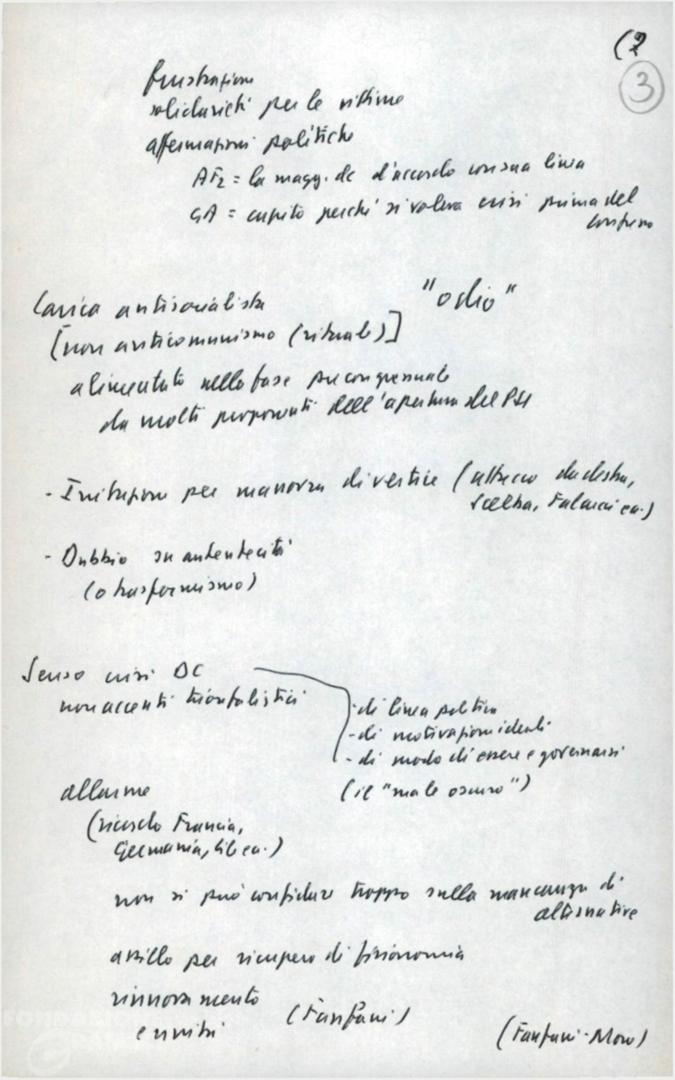 (2
3
frustrazione
solidarietà per le vittime
affermazioni politiche
AF2 = la magg. dc d'accordo con sua linea
GA = capito perché si voleva crisi prima del
congresso
Carica antisocialista "odio"
[non anticomunismo (rituale)]
alimentato nella fase precongressuale
da molti proponenti dell'apertura del PSI
- Irritazione per manovra di vertice (attacco da destra,
Scelba, ecc.)
- Dubbio su autenticità
(o trasformismo)
Senso crisi DC
non accenti trionfalistici
- di linea politica
- di motivazioni ideali
- di modo di essere e governarsi
(il "male oscuro")
allarme
(ricordo Francia,
Germania, ecc.)
non si può confidare troppo sulla mancanza di
alternative
assillo per recupero di fisionomia
rinnovamento
e unità (Fanfani)
(Fanfani-Moro)
FONDAZIO